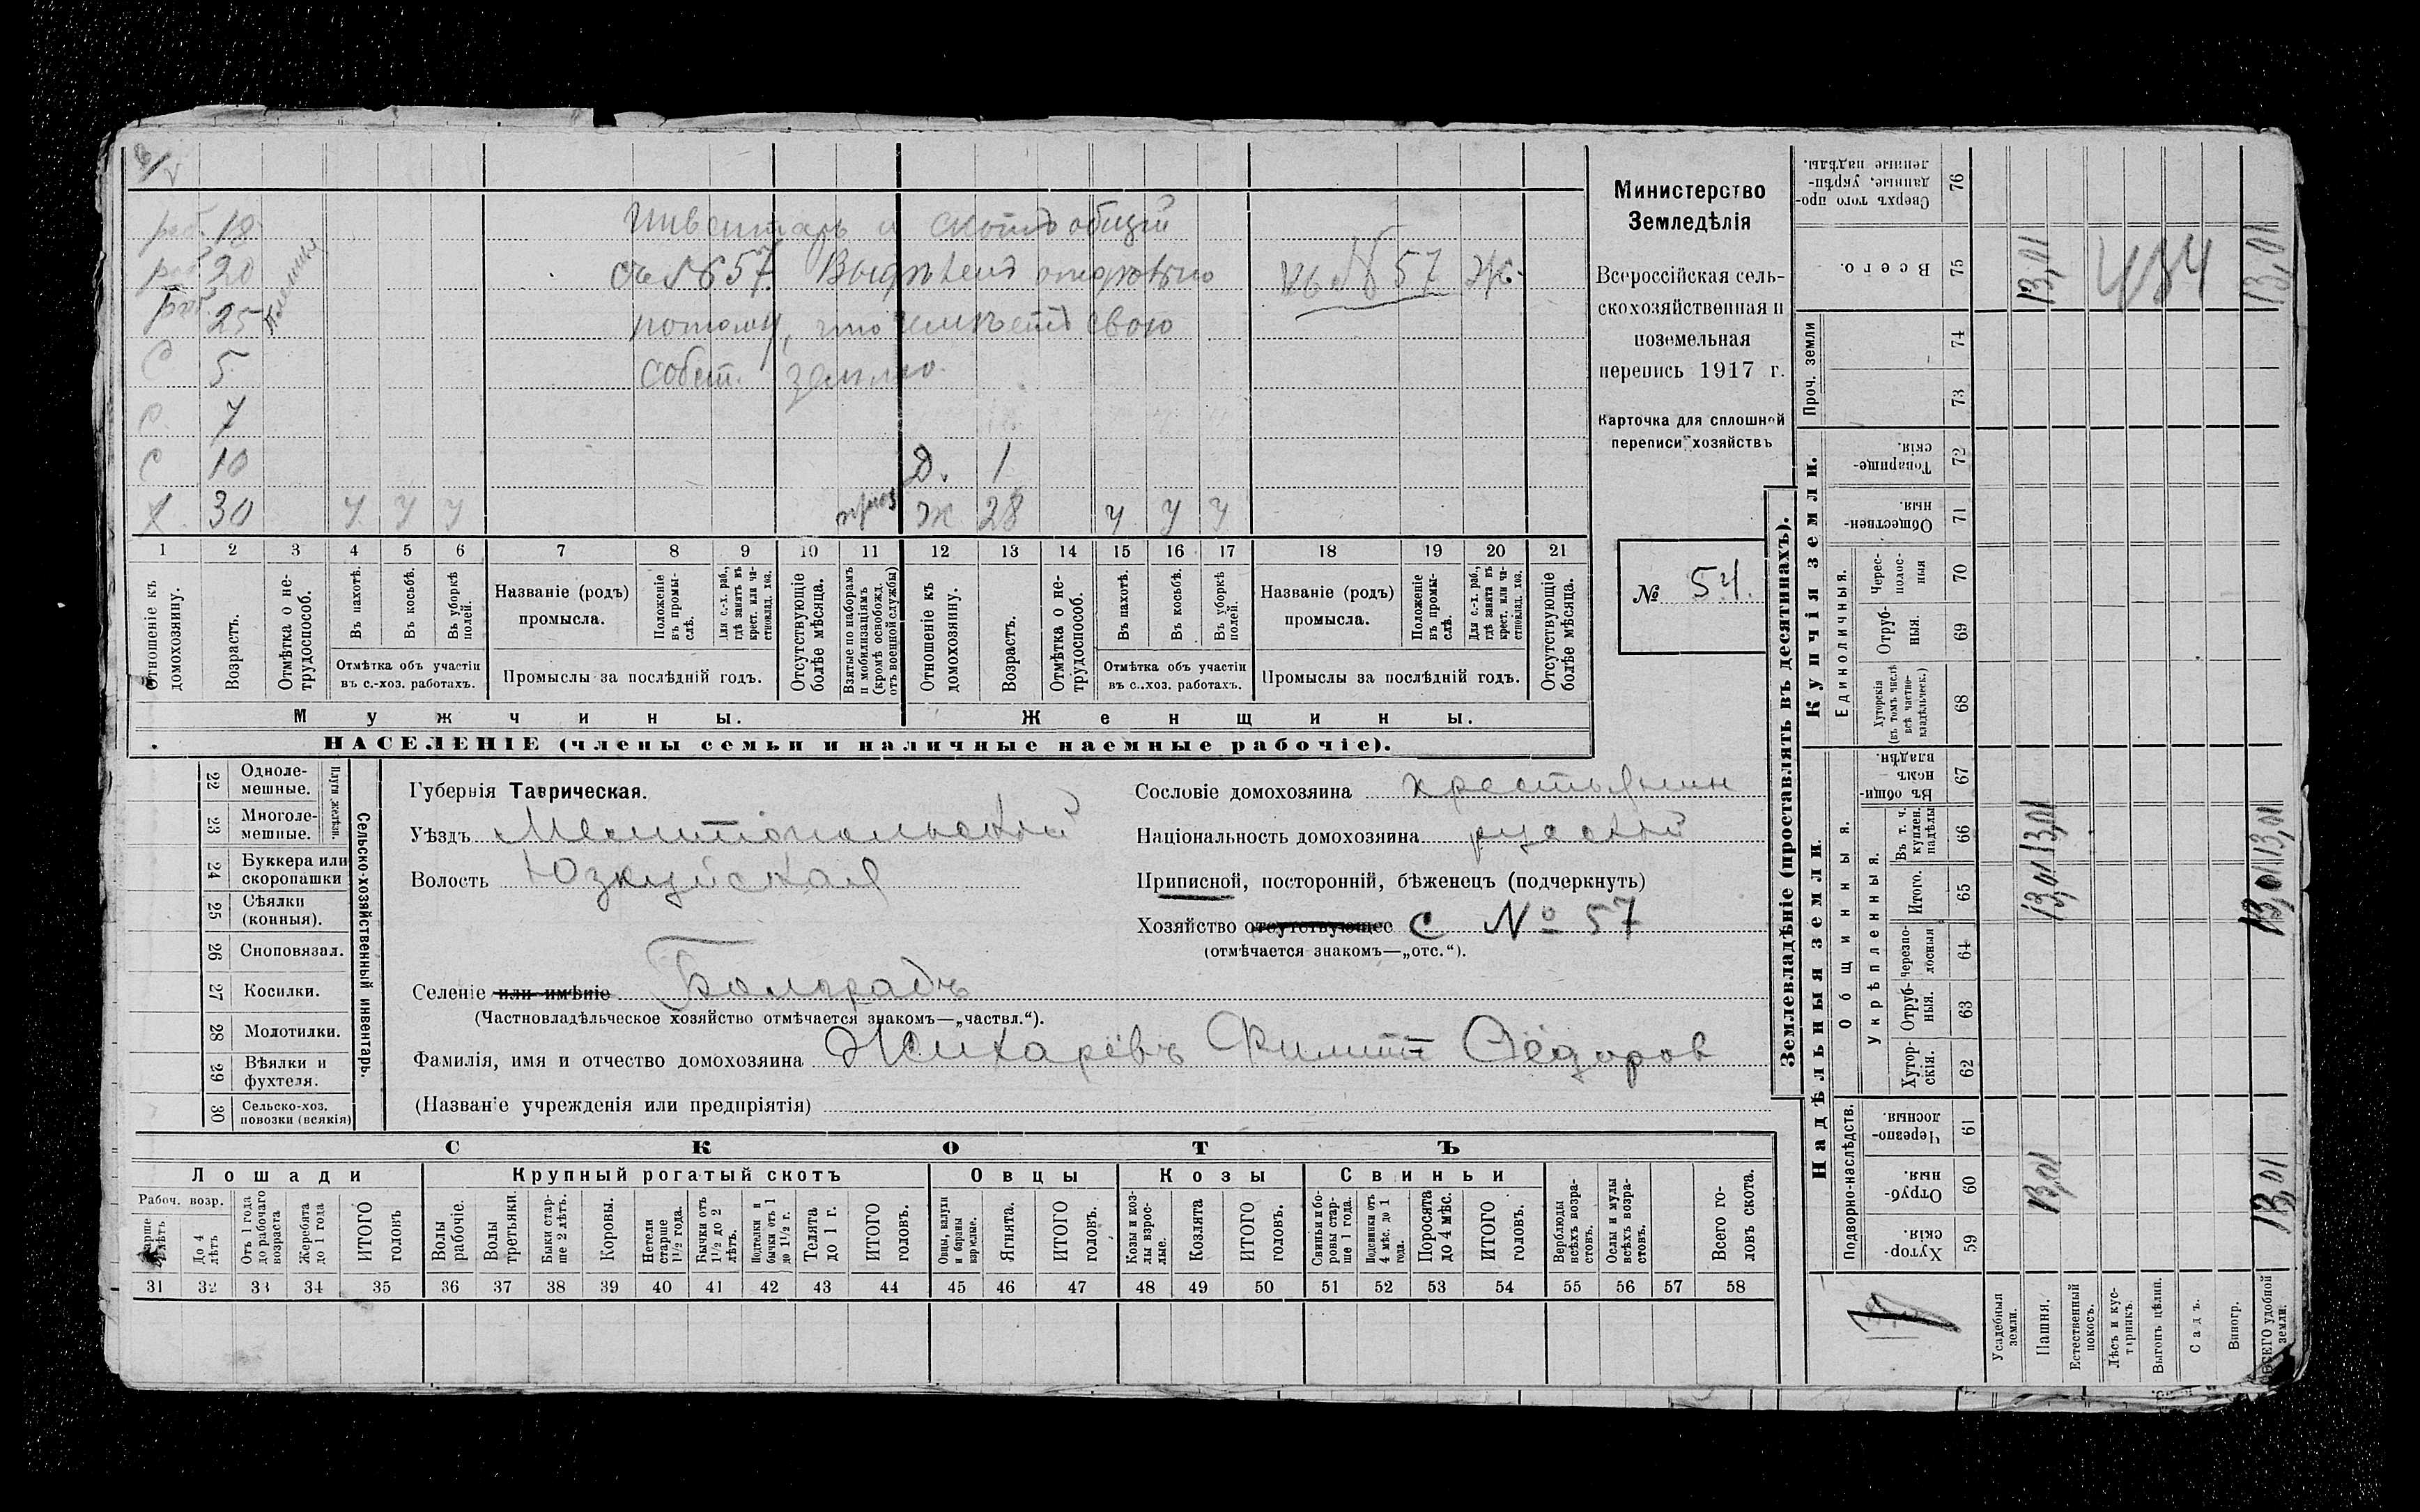 раб. 18
раб. 20
раб. 25
С 5
С. 7
С 10
Х. 30 У У У
Инвентарь и скотъ общій
съ № 57. Выдѣленъ отдѣльно
потому, что имѣетъ свою
собст. землю.
къ № 57 Ж.
Д. 1
Ж 28 У У У
1 2 3 4 5 6 7 8 9 10 11 12 13 14 15 16 17 18 19 20 21
Отношеніе къ домохозяину.
Возрастъ.
Отмѣтка о нетрудоспособ.
Въ пахотѣ.
Въ косьбѣ.
Въ уборкѣ полей.
Отмѣтка объ участіи
въ с.-хоз. работахъ.
Названіе (родъ)
промысла.
Положеніе въ промыслѣ.
Для с.-х. раб., гдѣ занятъ въ крест. или частновлад. хоз.
Промыслы за послѣдній годъ.
Отсутствующіе болѣе мѣсяца.
Взятые по наборамъ и мобилизаціямъ (кромѣ освобожд. отъ военной службы)
Отношеніе къ домохозяину.
Возрастъ.
Отмѣтка о нетрудоспособ.
Въ пахотѣ.
Въ косьбѣ.
Въ уборкѣ полей.
Отмѣтка объ участіи
въ с.-хоз. работахъ.
Названіе (родъ)
промысла.
Положеніе въ промыслѣ.
Для с.-х. раб., гдѣ занята въ крест. или частновлад. хоз.
Промыслы за послѣдній годъ.
Отсутствующіе болѣе мѣсяца.
Мужчины. Женщины.
НАСЕЛЕНІЕ (члены семьи и наличные наемные рабочіе).
Министерство
Земледѣлія
Всероссійская сель-
скохозяйственная и
поземельная
перепись 1917 г.
Карточка для сплошной
переписи хозяйствъ
№ 54.
22 Одноле-
мешные.
23 Многоле-
мешные.
Плуги желѣзн.
24 Буккера или
скоропашки
25 Сѣялки
(конныя).
26 Сноповязал.
27 Косилки.
28 Молотилки.
29 Вѣялки и
фухтеля.
30 Сельско-хоз.
повозки (всякія)
Сельско-хозяйственный инвентарь.
Губернія Таврическая.
Уѣздъ Мелитопольскій
Волость Юзкуйская
Сословіе домохозяина крестьянин
Національность домохозяина русскій
Приписной, посторонній, бѣженецъ (подчеркнуть)
Хозяйство отсутствующее С № 57
(отмѣчается знакомъ—„отс.“).
Селеніе или имѣніе Болградъ
(Частновладѣльческое хозяйство отмѣчается знакомъ—„частвл.“).
Фамилія, имя и отчество домохозяина Жихарёвъ Филипп Фёдоров
(Названіе учрежденія или предпріятія)
СКОТЪ
Лошади Крупный рогатый скотъ Овцы Козы Свиньи
Рабоч. возр.
До 4 лѣтъ
Отъ 1 года до рабочаго возраста
Жеребята до 1 года
ИТОГО головъ
Волы рабочіе.
Волы третьяки.
Быки старше 2 лѣтъ.
Коровы.
Нетели старше 1½ года.
Бычки отъ 1½ до 2 лѣтъ.
Подтелки и бычки отъ 1 до 1½ г.
Телята до 1 г.
ИТОГО головъ.
Овцы, валухи и бараны взрослые.
Ягнята.
ИТОГО головъ.
Козы и козлы взрослые.
Козлята
ИТОГО головъ.
Свиньи и боровы старше 1 года.
Подсвинки отъ 4 мѣс. до 1 года.
Поросята до 4 мѣс.
ИТОГО головъ.
Верблюды всѣхъ возрастовъ.
Ослы и мулы всѣхъ возрастовъ.
Всего головъ скота.
31 32 33 34 35 36 37 38 39 40 41 42 43 44 45 46 47 48 49 50 51 52 53 54 55 56 57 58
Землевладѣніе (проставлять въ десятинахъ).
Сверхъ того проданные, укрѣпленные надѣлы. 76
Всего. 75 13,01 484 13,01
Проч. земли 74
73
Купчія земли.
Товарищескія. 72
Общественныя. 71
Единоличныя.
Чересполосныя 70
Отрубныя. 69
Хуторскія (въ томъ числѣ всѣ частновладѣльческ.) 68
Надѣльныя земли.
Общинныя.
Въ общинномъ владѣн. 67
Укрѣпленныя.
Въ т. ч. куплен. надѣлы 66 13,01 13,01
Итого. 65 13,01 13,01
Черезполосныя 64
Отрубныя. 63
Хуторскія. 62
Подворно-наслѣдств.
Черезполосныя. 61
Отрубныя. 60 13,01 13,01
Хуторскія. 59
Усадебныя земли.
Пашня.
Естественный покосъ.
Лѣсъ и кустарникъ.
Выгонъ цѣлин.
Садъ.
Виногр.
ВСЕГО удобной земли.